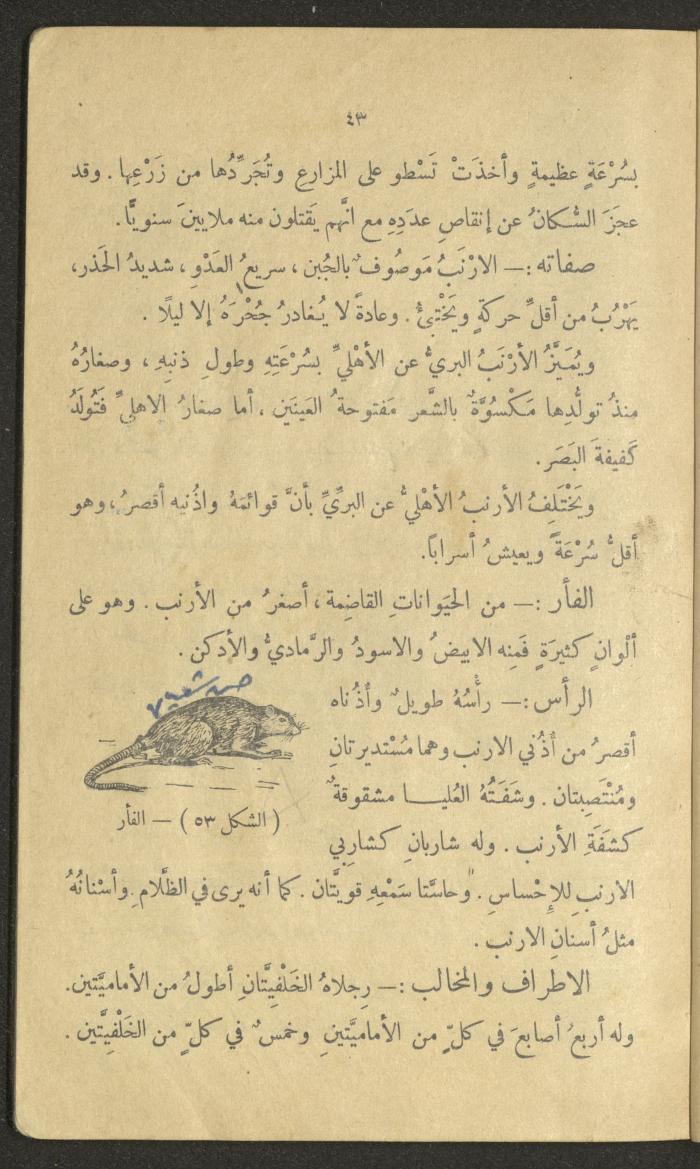 ٤٣
بسُرْعَةٍ عظيمةٍ وأخذَتْ تَسْطو على المزارعِ وتُجَرِّدُها من زَرْعِها . وقد
عجَزَ السُّكانُ عن إنقاصِ عددِهِ مع انَّهم يَقتلون منه ملايينَ سنويًّا .
صفاته :— الارْنَبُ مَوصُوفٌ بالجُبن ، سريعُ العَدْوِ ، شديدُ الحَذر ،
يَهْرُبُ من أقلِّ حركةٍ ويَخْتبِئُ . وعادةً لا يُغادرُ جُحْرَهُ إلا ليلًا .
ويُمَيَّزُ الأرْنَبُ البريُّ عن الأهْليِّ بسُرْعَتِهِ وطولِ ذنبِهِ ، وصغارُهُ
منذُ تولُّدِها مَكْسُوَّةٌ بالشَّعر مَفتوحةُ العَينَين ، أما صغارُ الاهليِّ فَتُولَدُ
كَفيفةَ البَصَر .
ويَخْتَلِفُ الأرنبُ الأهْليُّ عن البرِّيِّ بأنَّ قوائمَهُ واذُنيه أقصرُ ، وهو
أقلُّ سُرْعَةً ويعيشُ أسرابًا .
الفأر :— من الحَيَوانَاتِ القاضِمة ، أصغرُ من الأرنب . وهو على
ألْوانٍ كثيرَةٍ فَمِنه الابيضُ والاسودُ والرَّماديُّ والأدكن .
الرأس :— رأْسُهُ طويلٌ وأذُناه
أقصرُ من أذُني الارنب وهما مُسْتديرتانِ
ومُنْتَصِبتان . وشَفَتُهُ العُليا مشقوقةٌ
كشفَةِ الأرنب . وله شاربانِ كشاربِي
(الشكل ٥٣) — الفأر
الارنبِ للإِحْساسِ . وحاسَّتا سَمْعِهِ قويَّتان . كما أنه يرى في الظَّلام . وأسْنانُهُ
مثلُ أسنانِ الارنب .
الاطراف والمخالب :— رِجلاهُ الخَلْفِيَّتانِ أطولُ من الأماميَّتين .
وله أربعُ أصابعَ في كلٍّ من الأماميَّتينِ وخمسٌ في كلٍّ من الخَلْفِيَّتين .